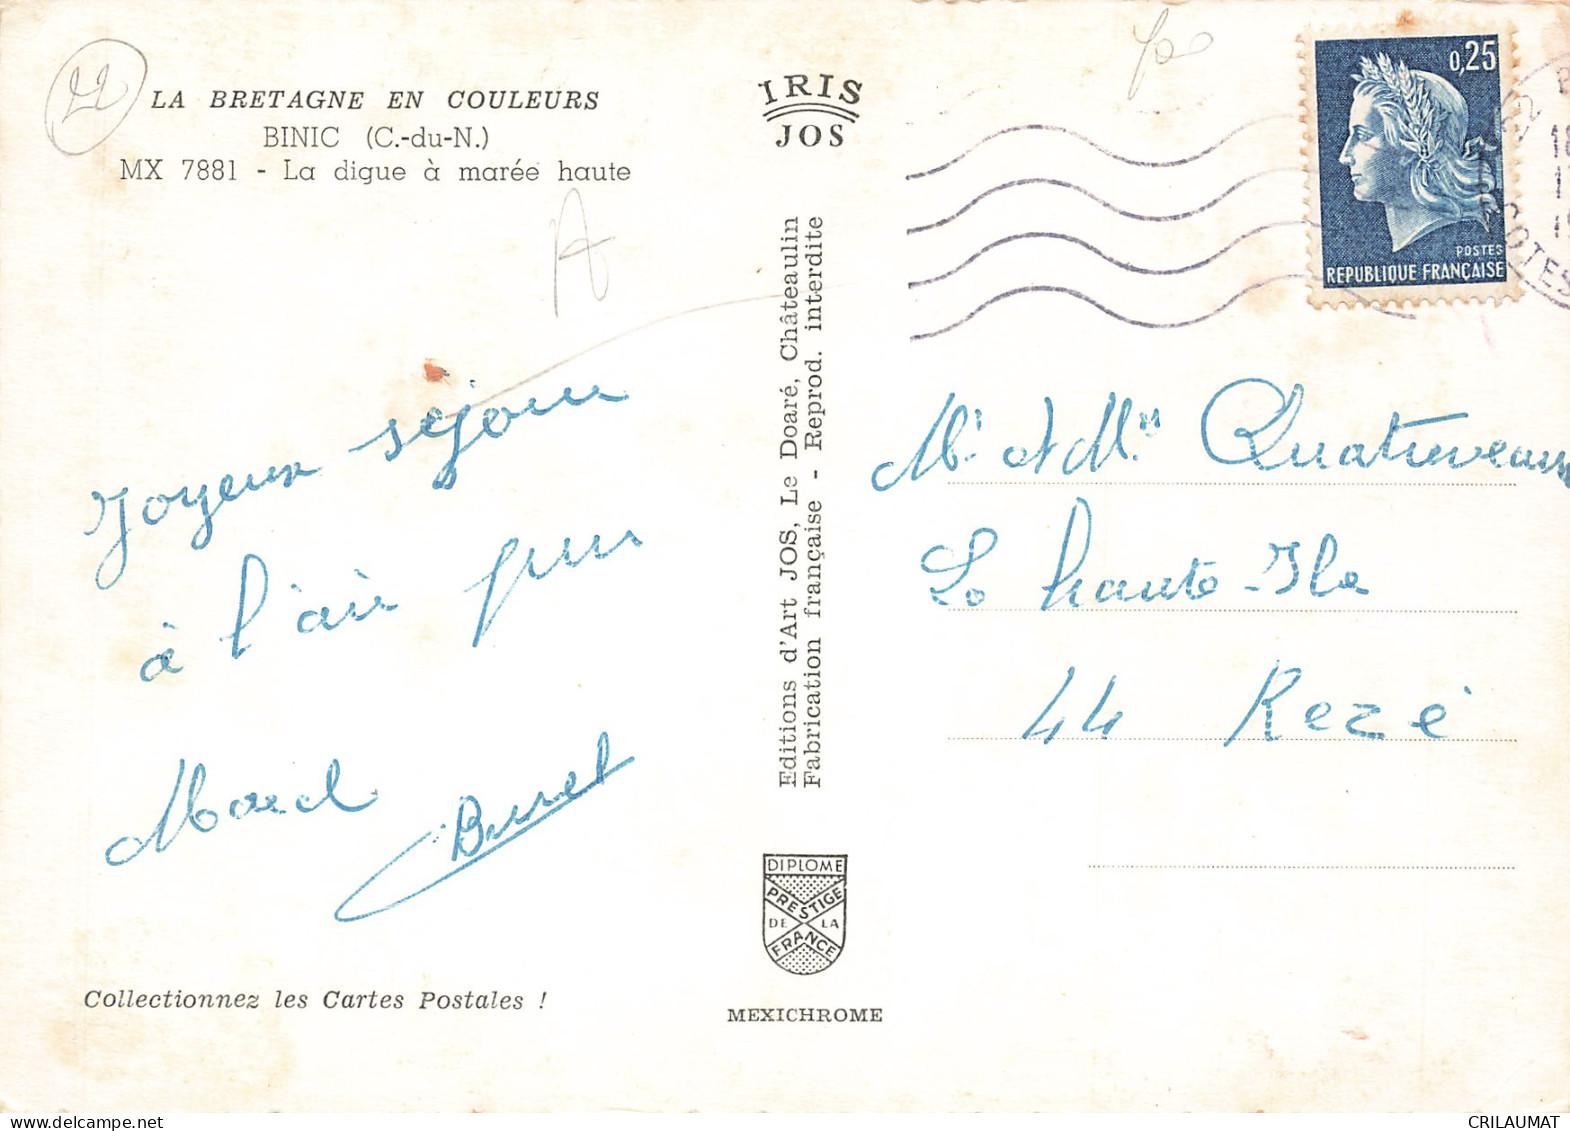 22
LA BRETAGNE EN COULEURS
BINIC (C.-du-N.)
MX 7881 - La digue à marée haute
A
Joyeux séjour
à l'air pur
Marcel
Collectionnez les Cartes Postales !
IRIS
JOS
Editions d'Art JOS, Le Doaré, Châteaulin
Fabrication française - Reprod. interdite
DIPLOME
PRESTIGE
DE LA
FRANCE
MEXICHROME
0,25
POSTES
REPUBLIQUE FRANÇAISE
Mr et Mme Quatreveaux
La haute-Ile
44 Rezé
CRILAUMAT